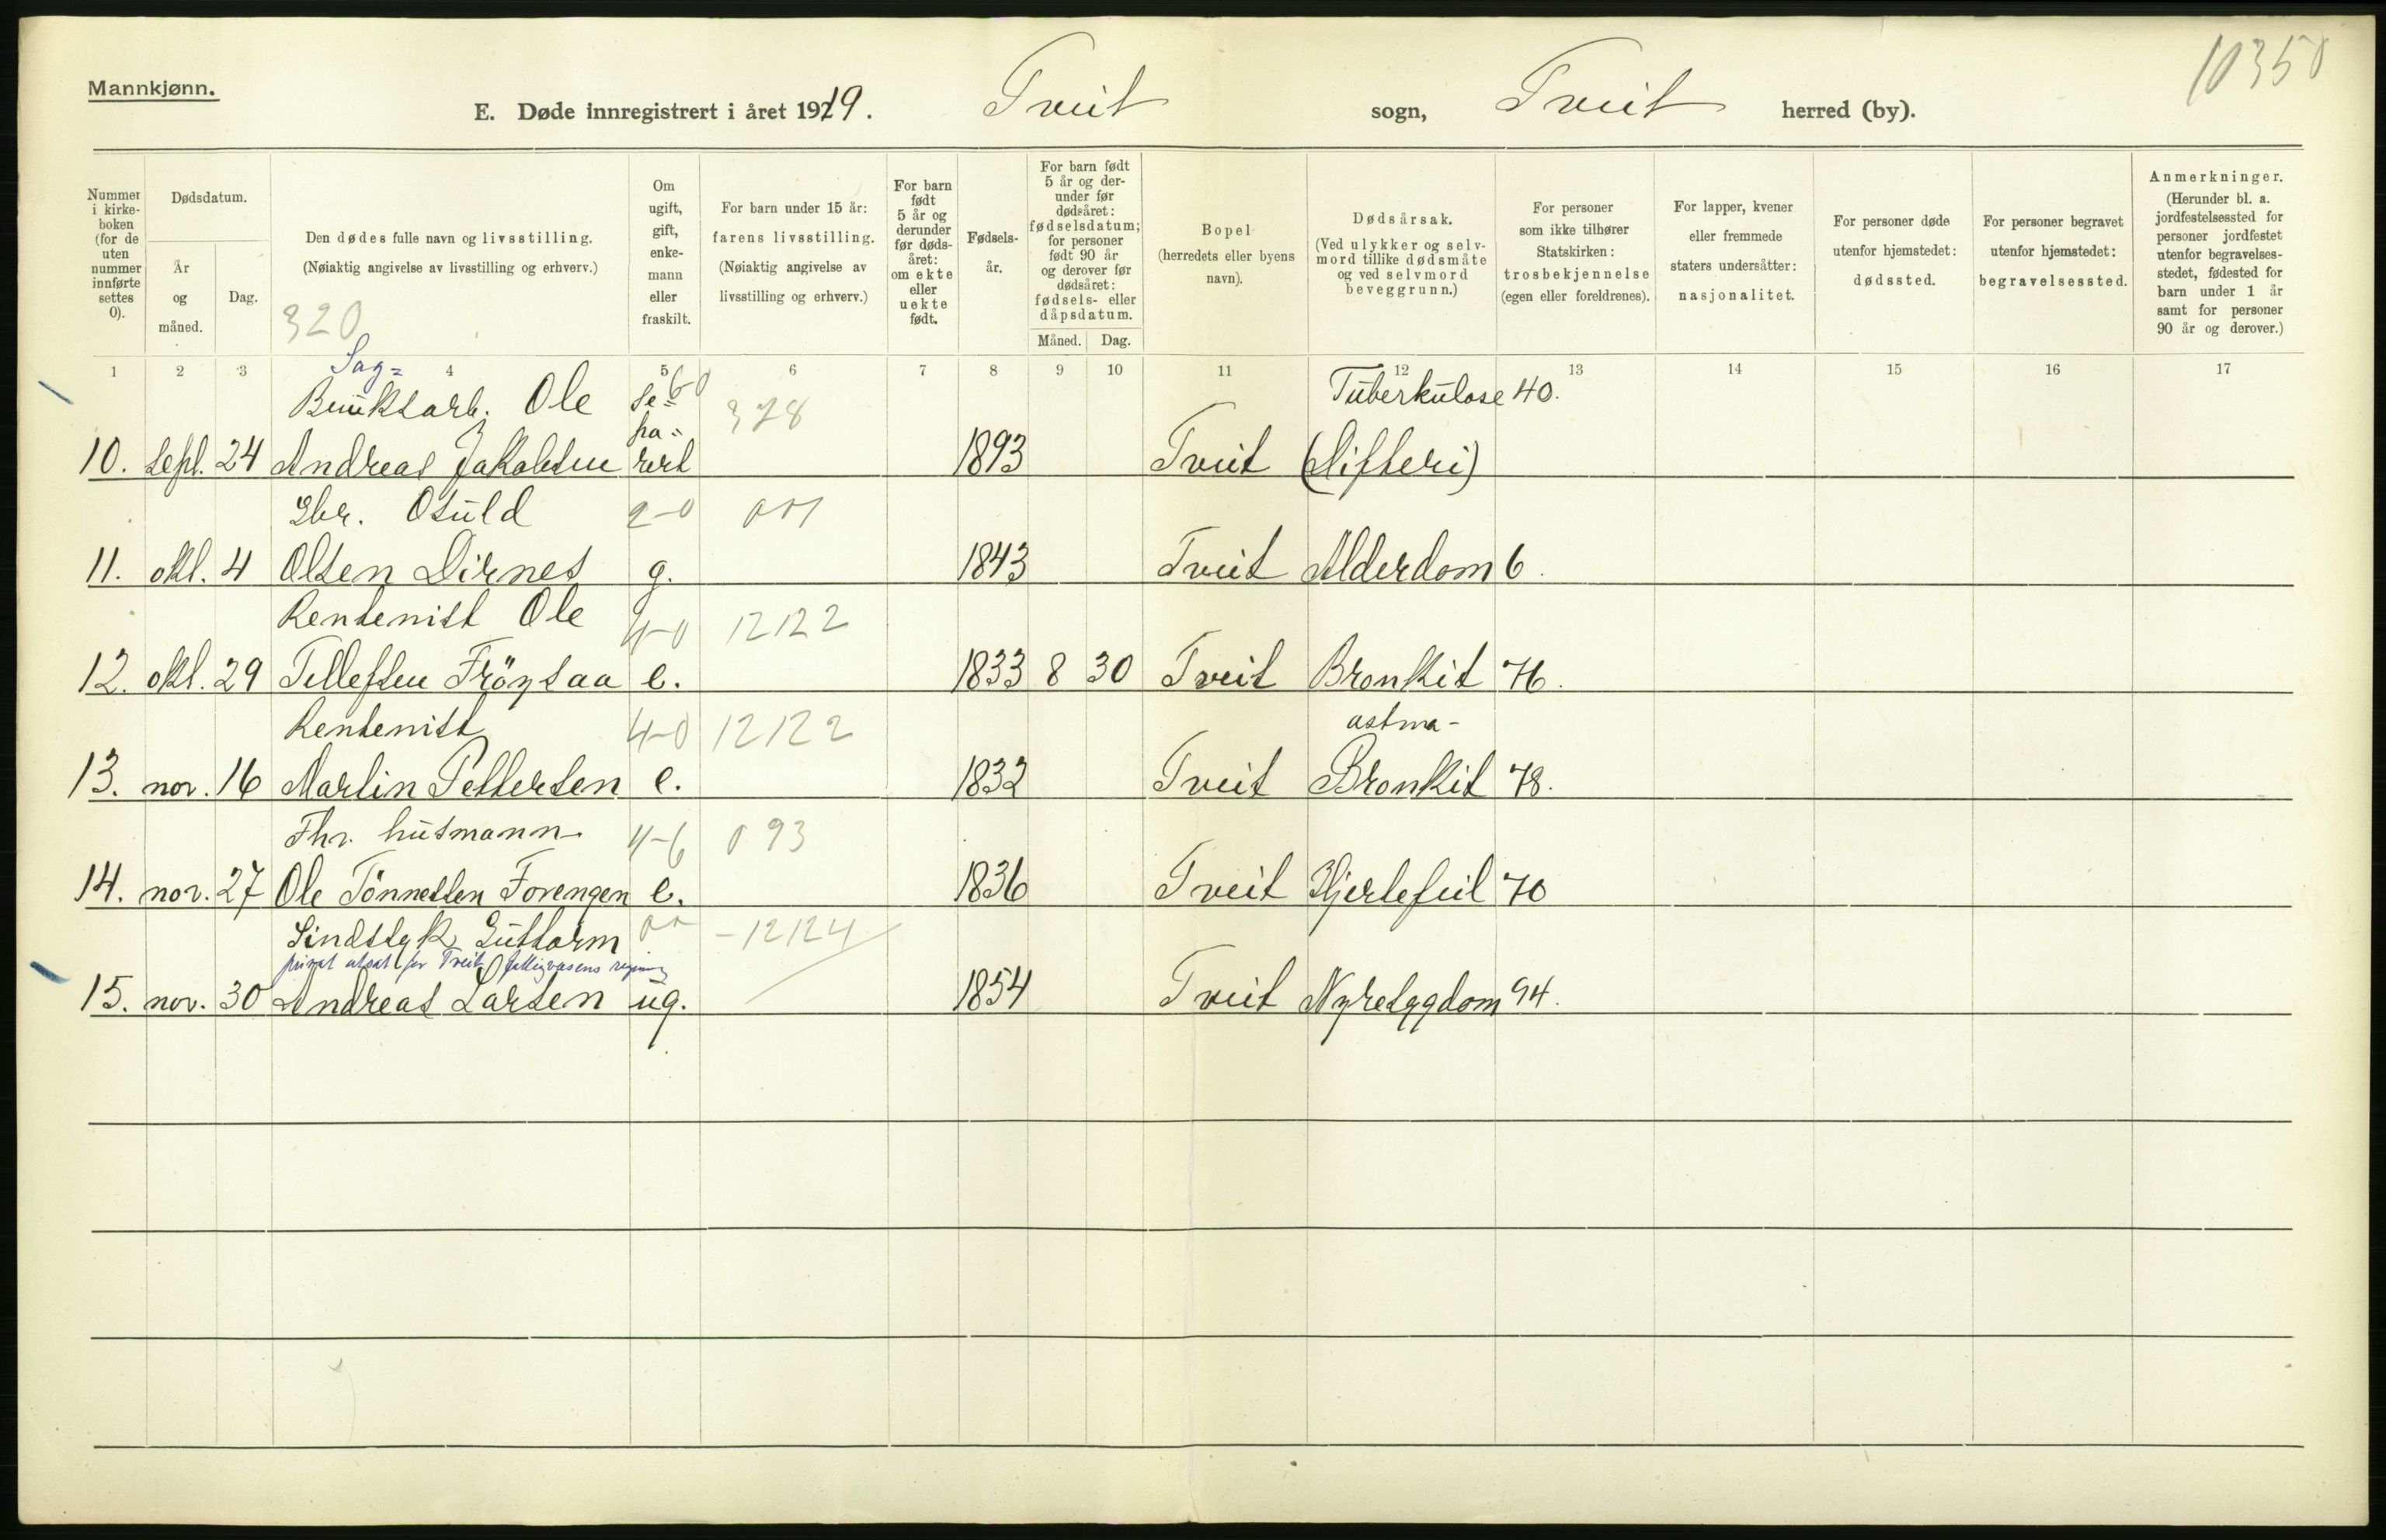 10350
Mannkjønn.
E. Døde innregistrert i året 1919. Tveit sogn, Tveit herred (by).
Nummer i kirkeboken (for de uten nummer innførte settes 0).
Dødsdatum.
År og måned.
Dag.
Den dødes fulle navn og livsstilling.
(Nøiaktig angivelse av livsstilling og erhverv.)
320
Om ugift, gift, enkemann eller fraskilt.
For barn under 15 år: farens livsstilling.
(Nøiaktig angivelse av livsstilling og erhverv.)
For barn født 5 år og derunder før dødsåret: om ekte eller uekte født.
Fødselsår.
For barn født 5 år og derunder før dødsåret: fødselsdatum; for personer født 90 år og derover før dødsåret: fødsels- eller dåpsdatum.
Måned. Dag.
Bopel (herredets eller byens navn).
Dødsårsak.
(Ved ulykker og selvmord tillike dødsmåte og ved selvmord beveggrunn.)
For personer som ikke tilhører Statskirken: trosbekjennelse (egen eller foreldrenes).
For lapper, kvener eller fremmede staters undersåtter: nasjonalitet.
For personer døde utenfor hjemstedet: dødssted.
For personer begravet utenfor hjemstedet: begravelsessted.
Anmerkninger.
(Herunder bl. a. jordfestelsessted for personer jordfestet utenfor begravelsesstedet, fødested for barn under 1 år samt for personer 90 år og derover.)
1 2 3 4 5 6 7 8 9 10 11 12 13 14 15 16 17
Sag=
Bruksarb. Ole se= 6-0 378 Tuberkulose 40.
pa=
10. sept. 24 Andreas Jakobsen rert 1893 Tveit (Difteri)
Gbr. Osuld 2-0 001
11. okt. 4 Olsen Dirnes g. 1843 Tveit Alderdom 6.
Rentenist Ole 4-0 12122
12. okt. 29 Tellefsen Fröysaa e. 1833 8 30 Tveit Bronkit 76.
Rentenist 4-0 12122 astma-
13. nov. 16 Martin Pettersen e. 1832 Tveit Bronkit 78.
Fhr. husmann 4-6 093
14. nov. 27 Ole Tönnessen Forengen e. 1836 Tveit Hjertefeil 70
Sindssyk Guttorm 00 -12124
privat utsat for Tveit fattigvæsens regning
15. nov. 30 Andreas Larsen ug. 1854 Tveit Nyresygdom 94.